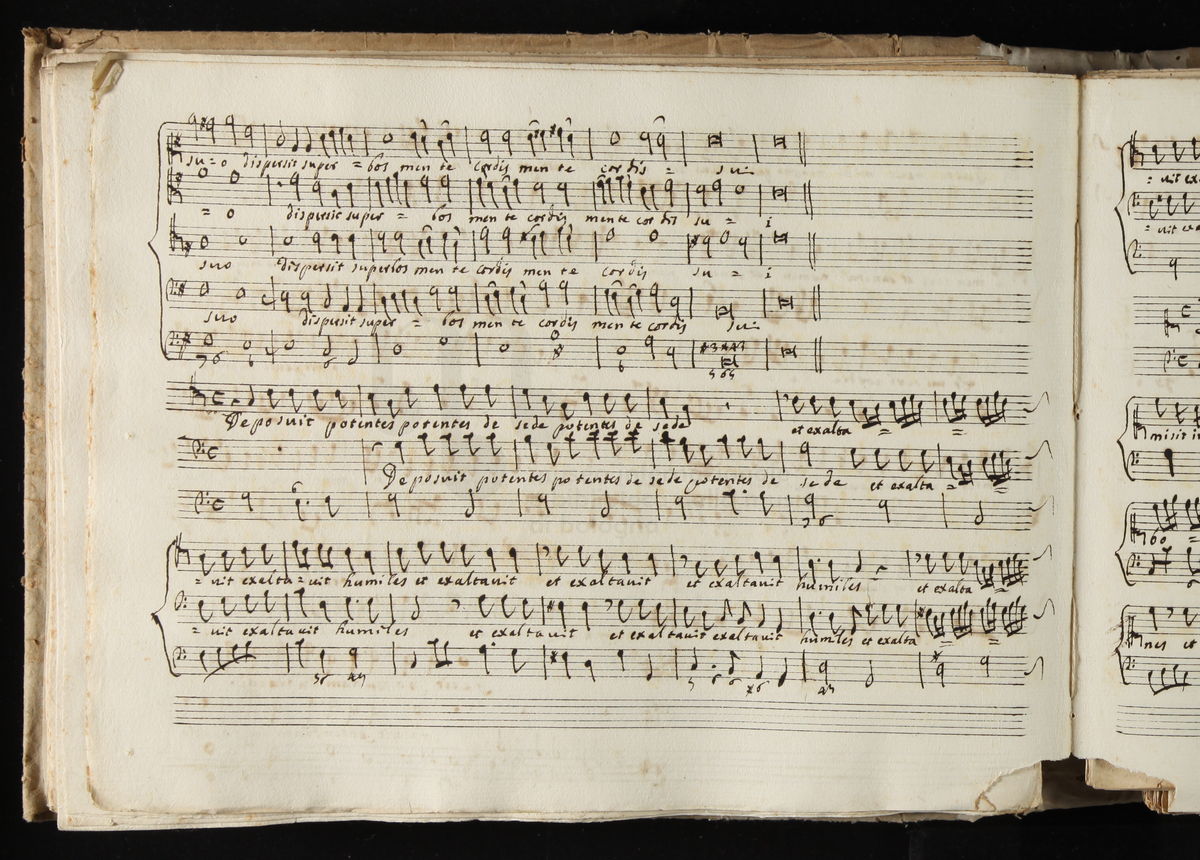 su = o dispersit super = bos men te cordis men te cordis = sui
= o dispersit super = bos men te cordis mente cor dis su = i
suo dispersit superbos men te cordis men te cordis su = i
suo dispersit super = bos men te cordis men te cordis sui
7 6 6 6 6
6
5 6 5
De posuit potentes potentes de sede potentes de sede et exalta =
De posuit potentes po tentes de sede potentes de sede et exalta =
= vit exalta = vit humiles et exaltavit et exaltavit et exaltavit humiles et exalta
= vit exaltavit humiles et exaltavit et exaltavit exaltavit humiles et exalta
= vit exa
= vit exa
misit i
nes et